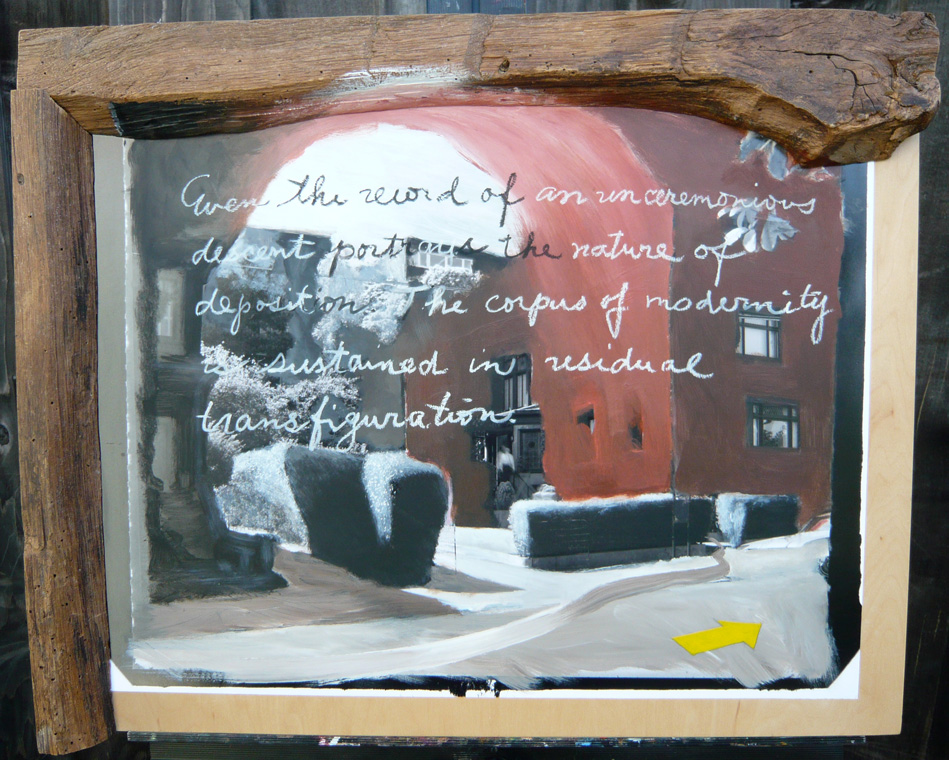 Even the record of an unceremonious
descent portrays the nature of
deposition. The corpus of modernity
is sustained in residual
transfiguration.